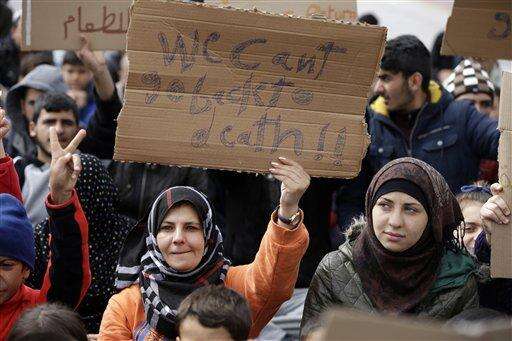 للطعام
We Cant
go back to
death!!